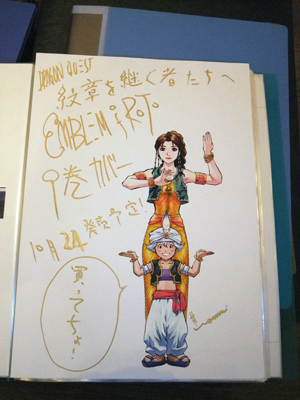 DRAGON QUEST
紋章を継ぐ者たちへ
EMBLEM of ROTO
1巻カバー
10月24発売予定!
買ってちょ!